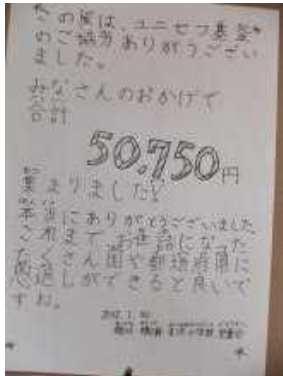 この度は、ユニセフ募金
のご協力ありがとうござい
ました。
みなさんのおかげで
合計
50.750円
集まりました!
本当にありがとうございました。
これまでお世話になった
たくさん国や都道府県に
恩返しができると良いで
すね。